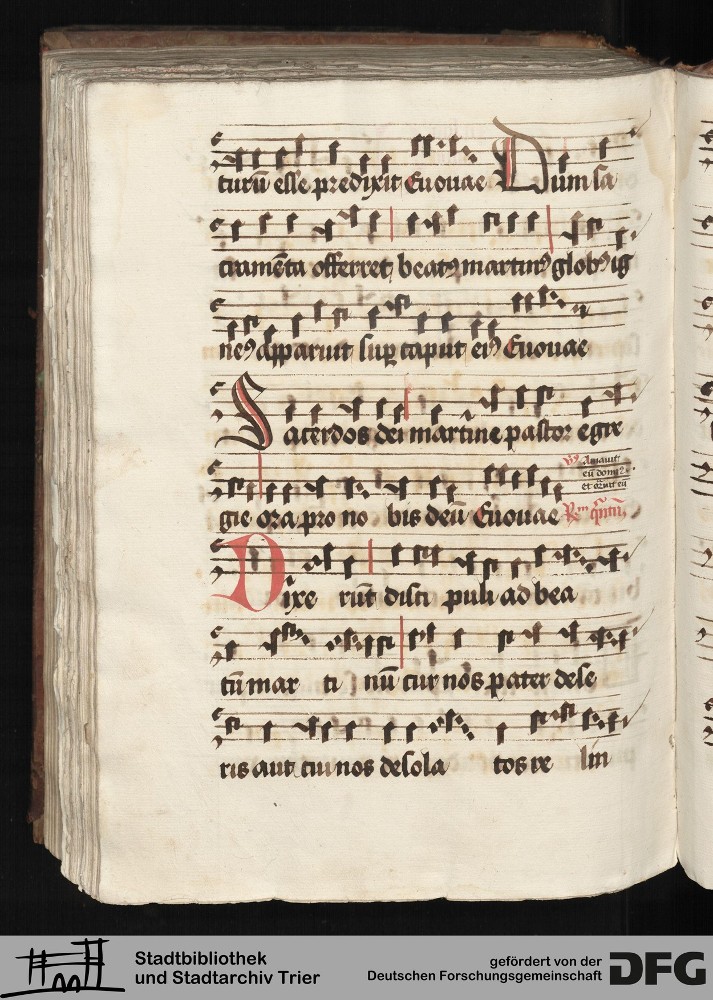 turū esse predixit Euouae Dum sa
cramēta offerret beatꝰ martinꝰ globꝰ ig
neꝰ apparuit sup caput eiꝰ Euouae
Sacerdos dei martine pastor egre
gie ora pro no bis deū Euouae
Amauit
eū domi
Dixe rūt disci puli ad bea
tū mar ti nū cur nos pater dese
ris aut cui nos desola tos re lin
Stadtbibliothek
und Stadtarchiv Trier
gefördert von der
Deutschen Forschungsgemeinschaft
DFG